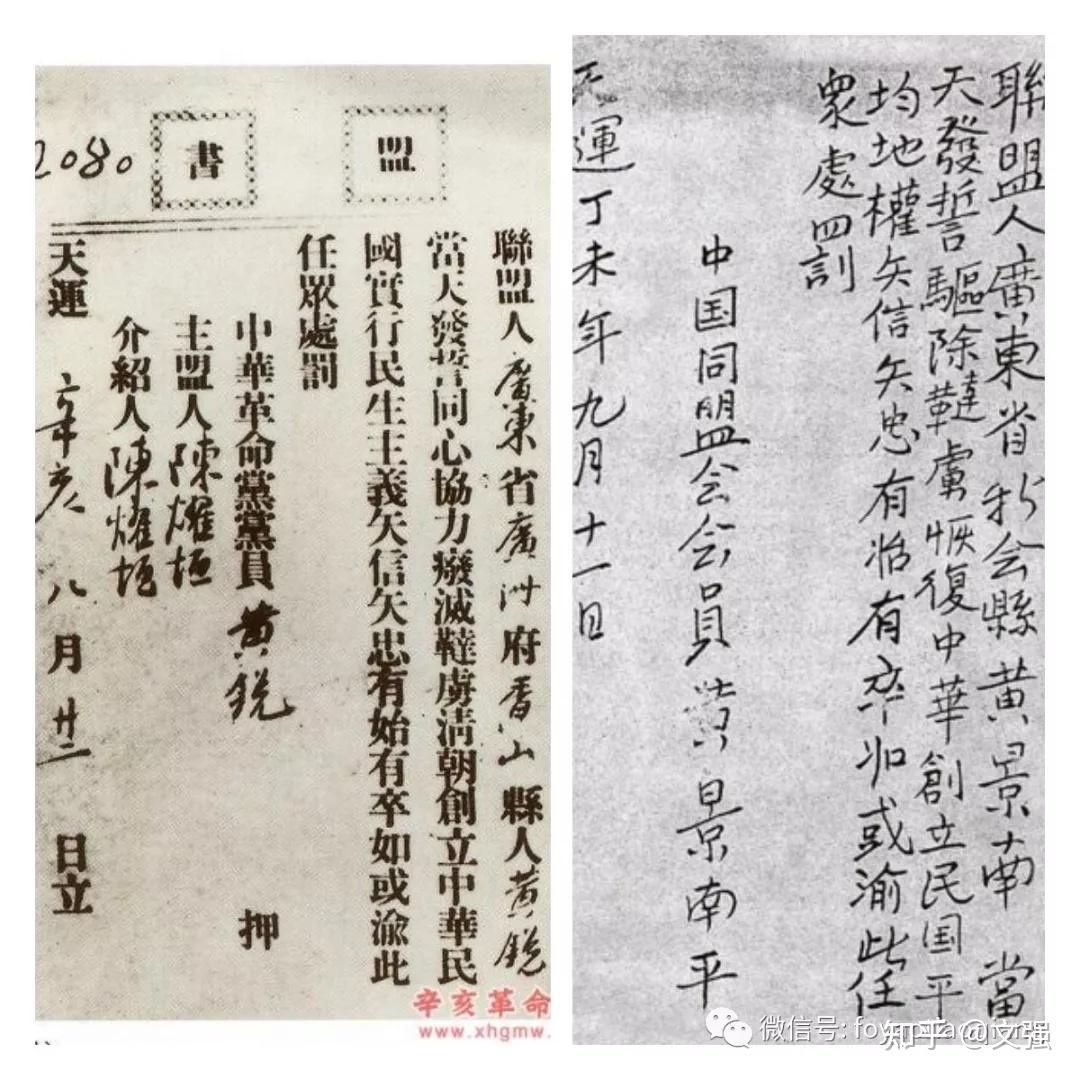 盟書
2080
聯盟人廣東省廣州府香山縣人黃銳
當天發誓同心協力癈滅韃虜清朝創立中華民
國實行民生主義矢信矢忠有始有卒如或渝此
任眾處罰
中華革命黨黨員黃銳 押
主盟人陳燿垣
介紹人陳燿垣
天運 年亥八月廿二日立
辛亥革命
www.xhgmw.
聯盟人廣東省新会縣黃景南當
天發誓驅除韃虜恢復中華創立民国平
均地權矢信矢忠有始有卒如或渝此任
衆處罰
中国同盟会会員黃景南平
天運丁未年九月十一日
微信号:
知乎 @文强